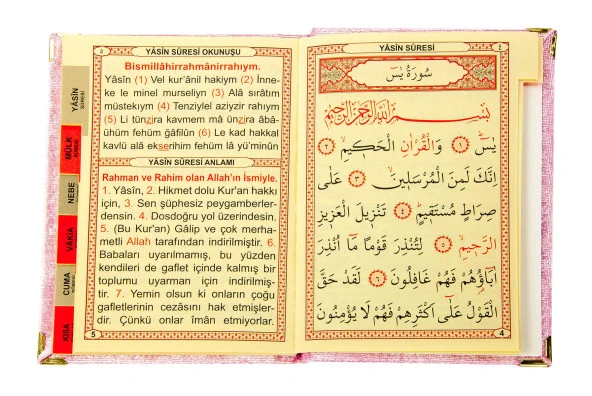 ٥ YÂSÎN SÛRESİ OKUNUŞU
Bismillâhirrahmânirrahıym.
Yâsîn (1) Vel kur'ânil hakiym (2) İnne-
ke le minel murseliyn (3) Alâ sıratım
müstekıym (4) Tenziylel aziyzir rahıym
(5) Li tünzira kavmem mâ ünzira âbâ-
ühüm fehüm ğâfilûn (6) Le kad hakkal
kavlü alâ ekserihim fehüm lâ yü'minûn
YÂSÎN SÛRESİ ANLAMI
Rahman ve Rahim olan Allah'ın İsmiyle.
1. Yâsîn, 2. Hikmet dolu Kur'an hakkı
için, 3. Sen şüphesiz peygamberler-
densin. 4. Dosdoğru yol üzerindesin.
5. (Bu Kur'an) Gâlip ve çok merha-
metli Allah tarafından indirilmiştir. 6.
Babaları uyarılmamış, bu yüzden
kendileri de gaflet içinde kalmış bir
toplumu uyarman için indirilmiş-
tir. 7. Yemin olsun ki onların çoğu
gafletlerinin cezasını hak etmişler-
dir. Çünkü onlar îmân etmiyorlar.
5
YÂSÎN
SÛRESİ
MÜLK
SÛRESİ
NEBE
VÂKIA
CUMA
KISA
YÂSÎN SÛRESİ ٤
سُورَةُ يٰسٓ
بِسْمِ اللّٰهِ الرَّحْمٰنِ الرَّحِيمِ
يٰسٓ ﴿١﴾ وَالْقُرْاٰنِ الْحَكِيمِ ﴿٢﴾
اِنَّكَ لَمِنَ الْمُرْسَلِينَ ﴿٣﴾ عَلٰى
صِرَاطٍ مُسْتَقِيمٍ ﴿٤﴾ تَنْزِيلَ الْعَزِيزِ
الرَّحِيمِ ﴿٥﴾ لِتُنْذِرَ قَوْمًا مَٓا اُنْذِرَ
اٰبَٓاؤُهُمْ فَهُمْ غَافِلُونَ ﴿٦﴾ لَقَدْ حَقَّ
الْقَوْلُ عَلٰٓى اَكْثَرِهِمْ فَهُمْ لَا يُؤْمِنُونَ
4